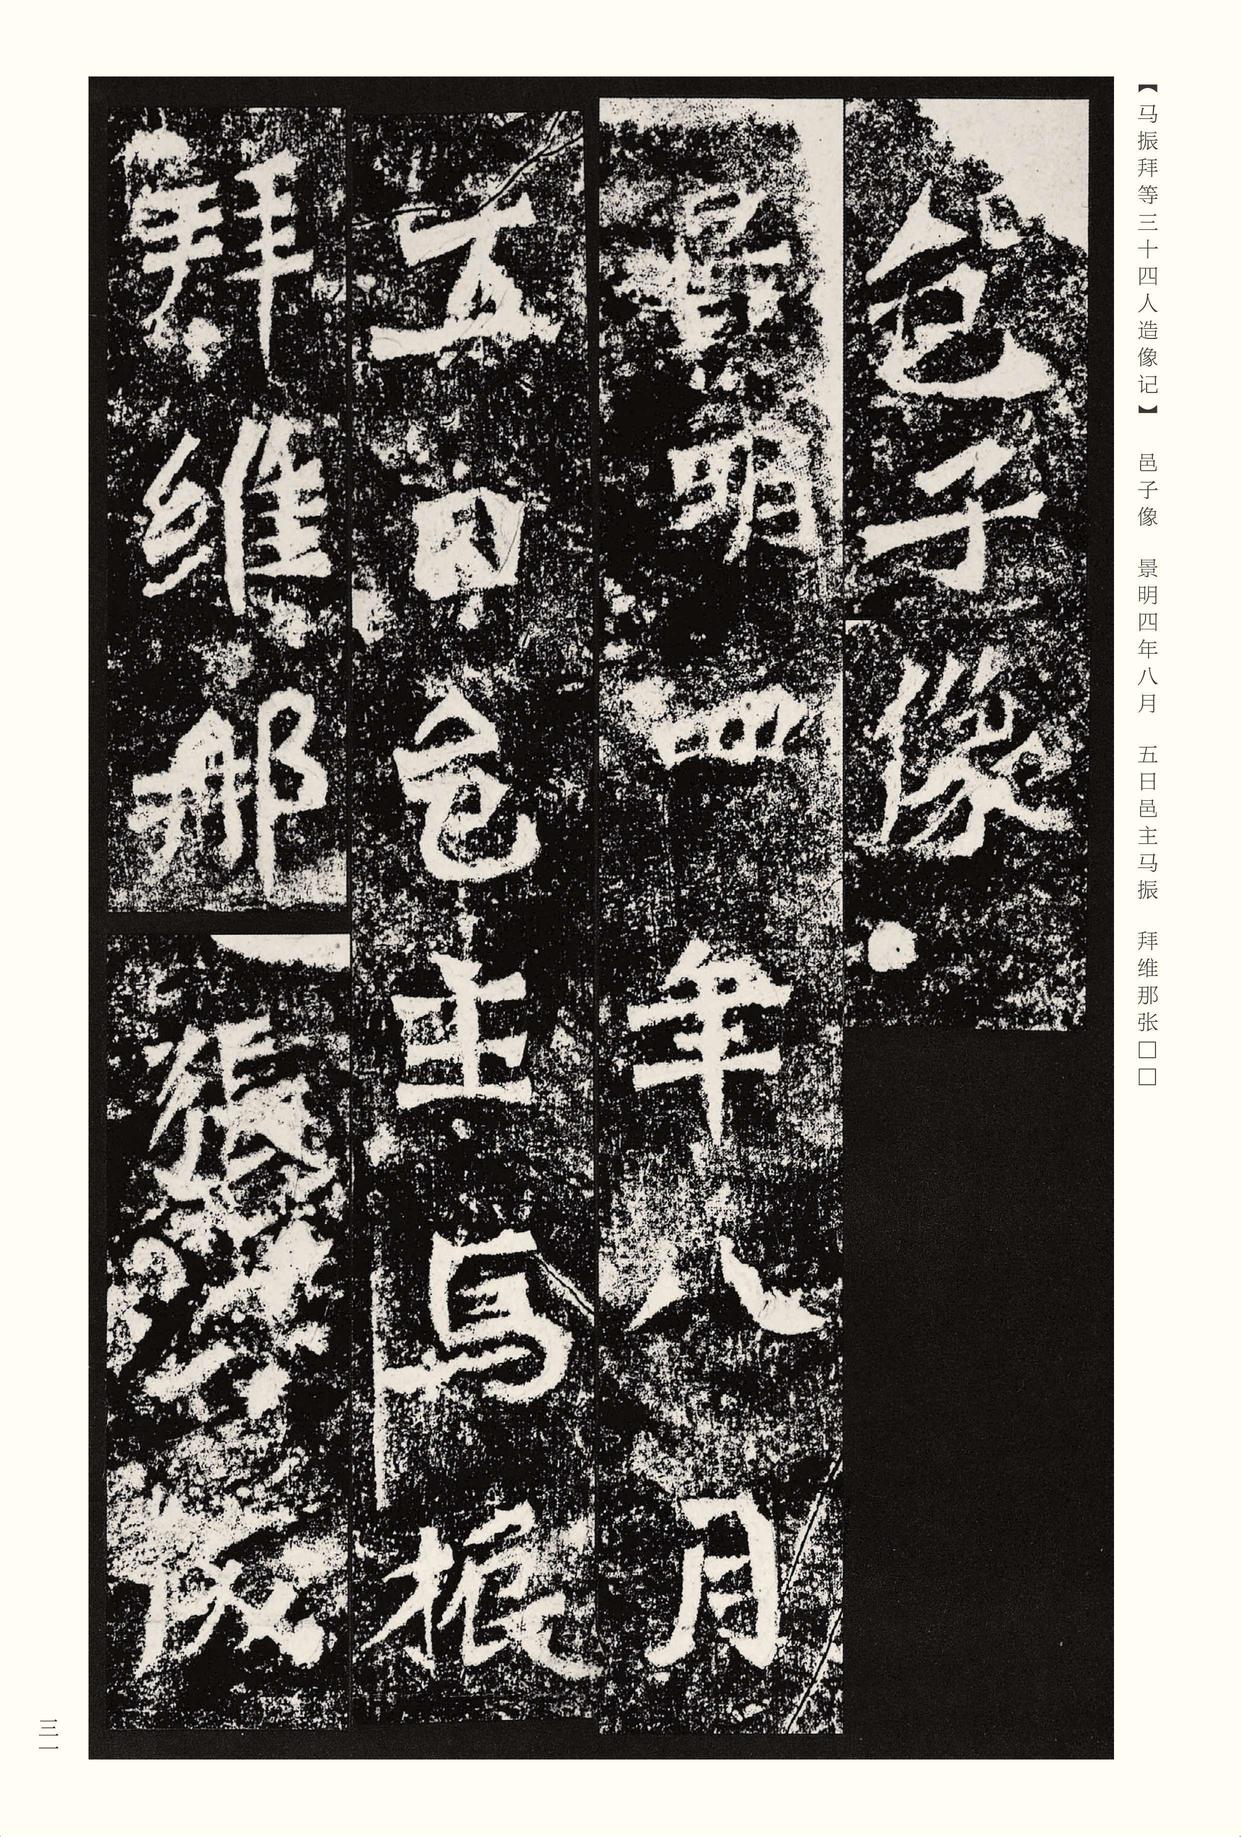 【马振拜等三十四人造像记】 邑子像 景明四年八月 五日邑主马振 拜维那张□□
邑子像
景明四年八月
五日邑主馬振
拜維那張
三一